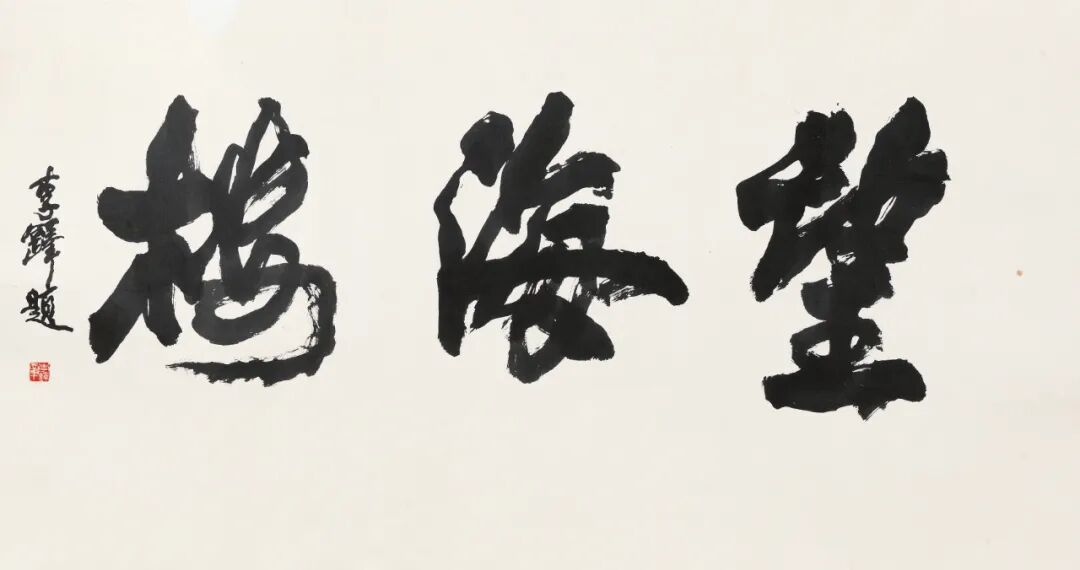 望海楼
李鐸题